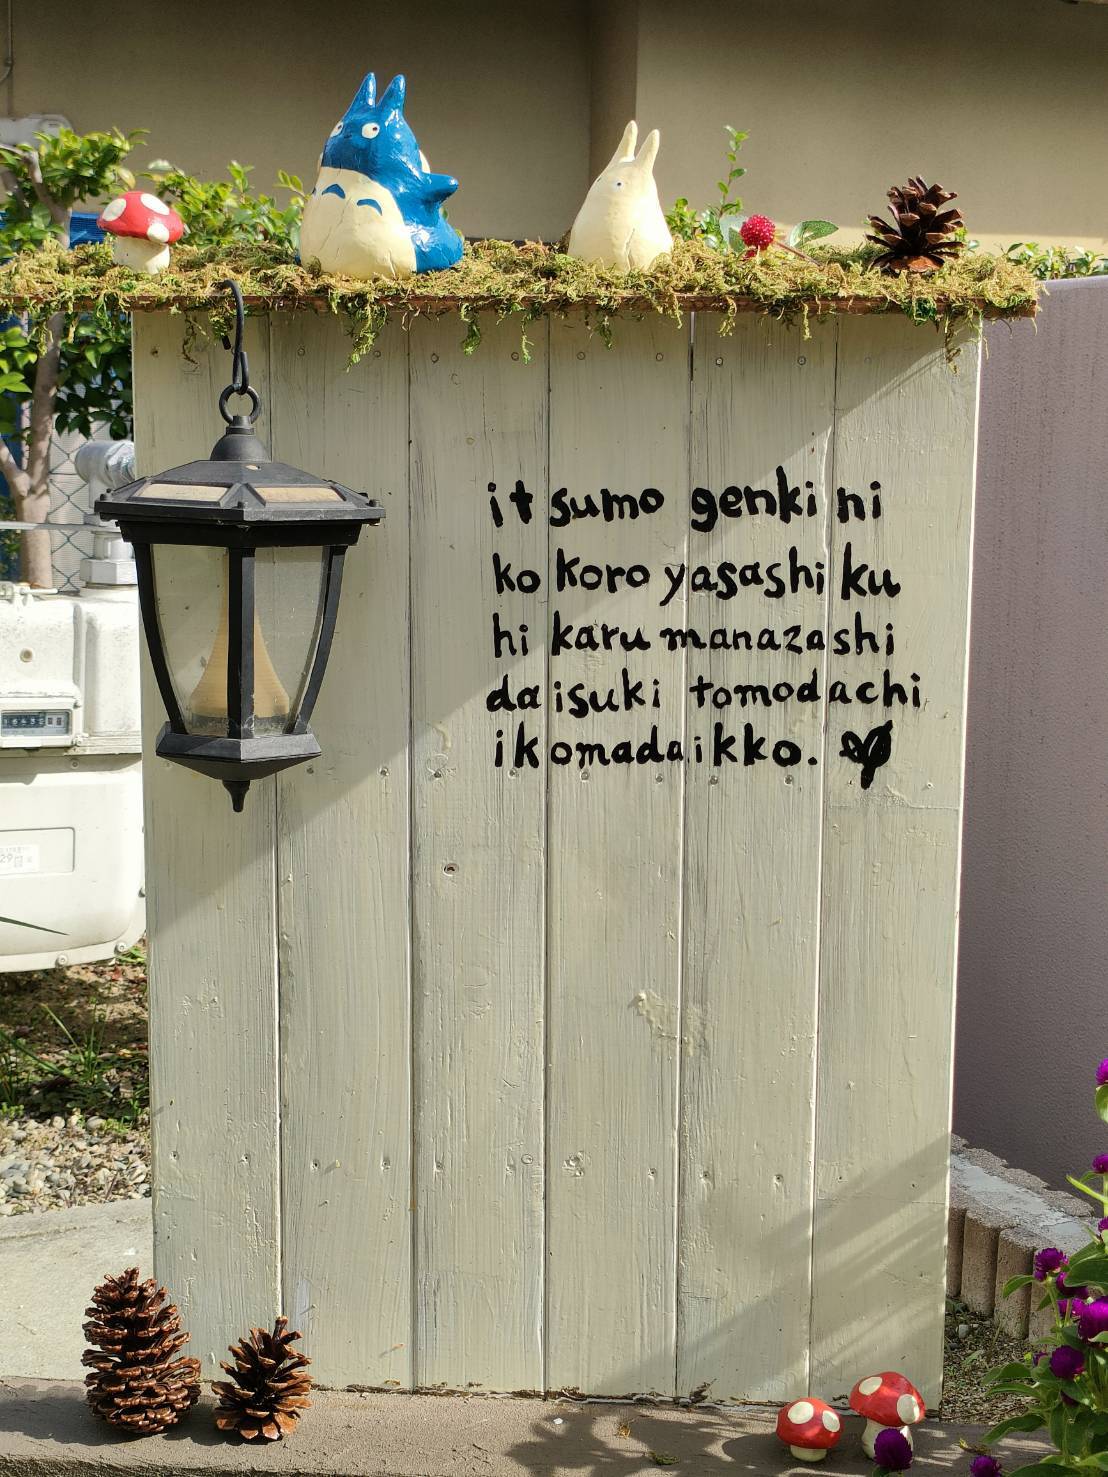 itsumo genki ni
kokoro yasashiku
hikaru manazashi
daisuki tomodachi
ikomadaikko.